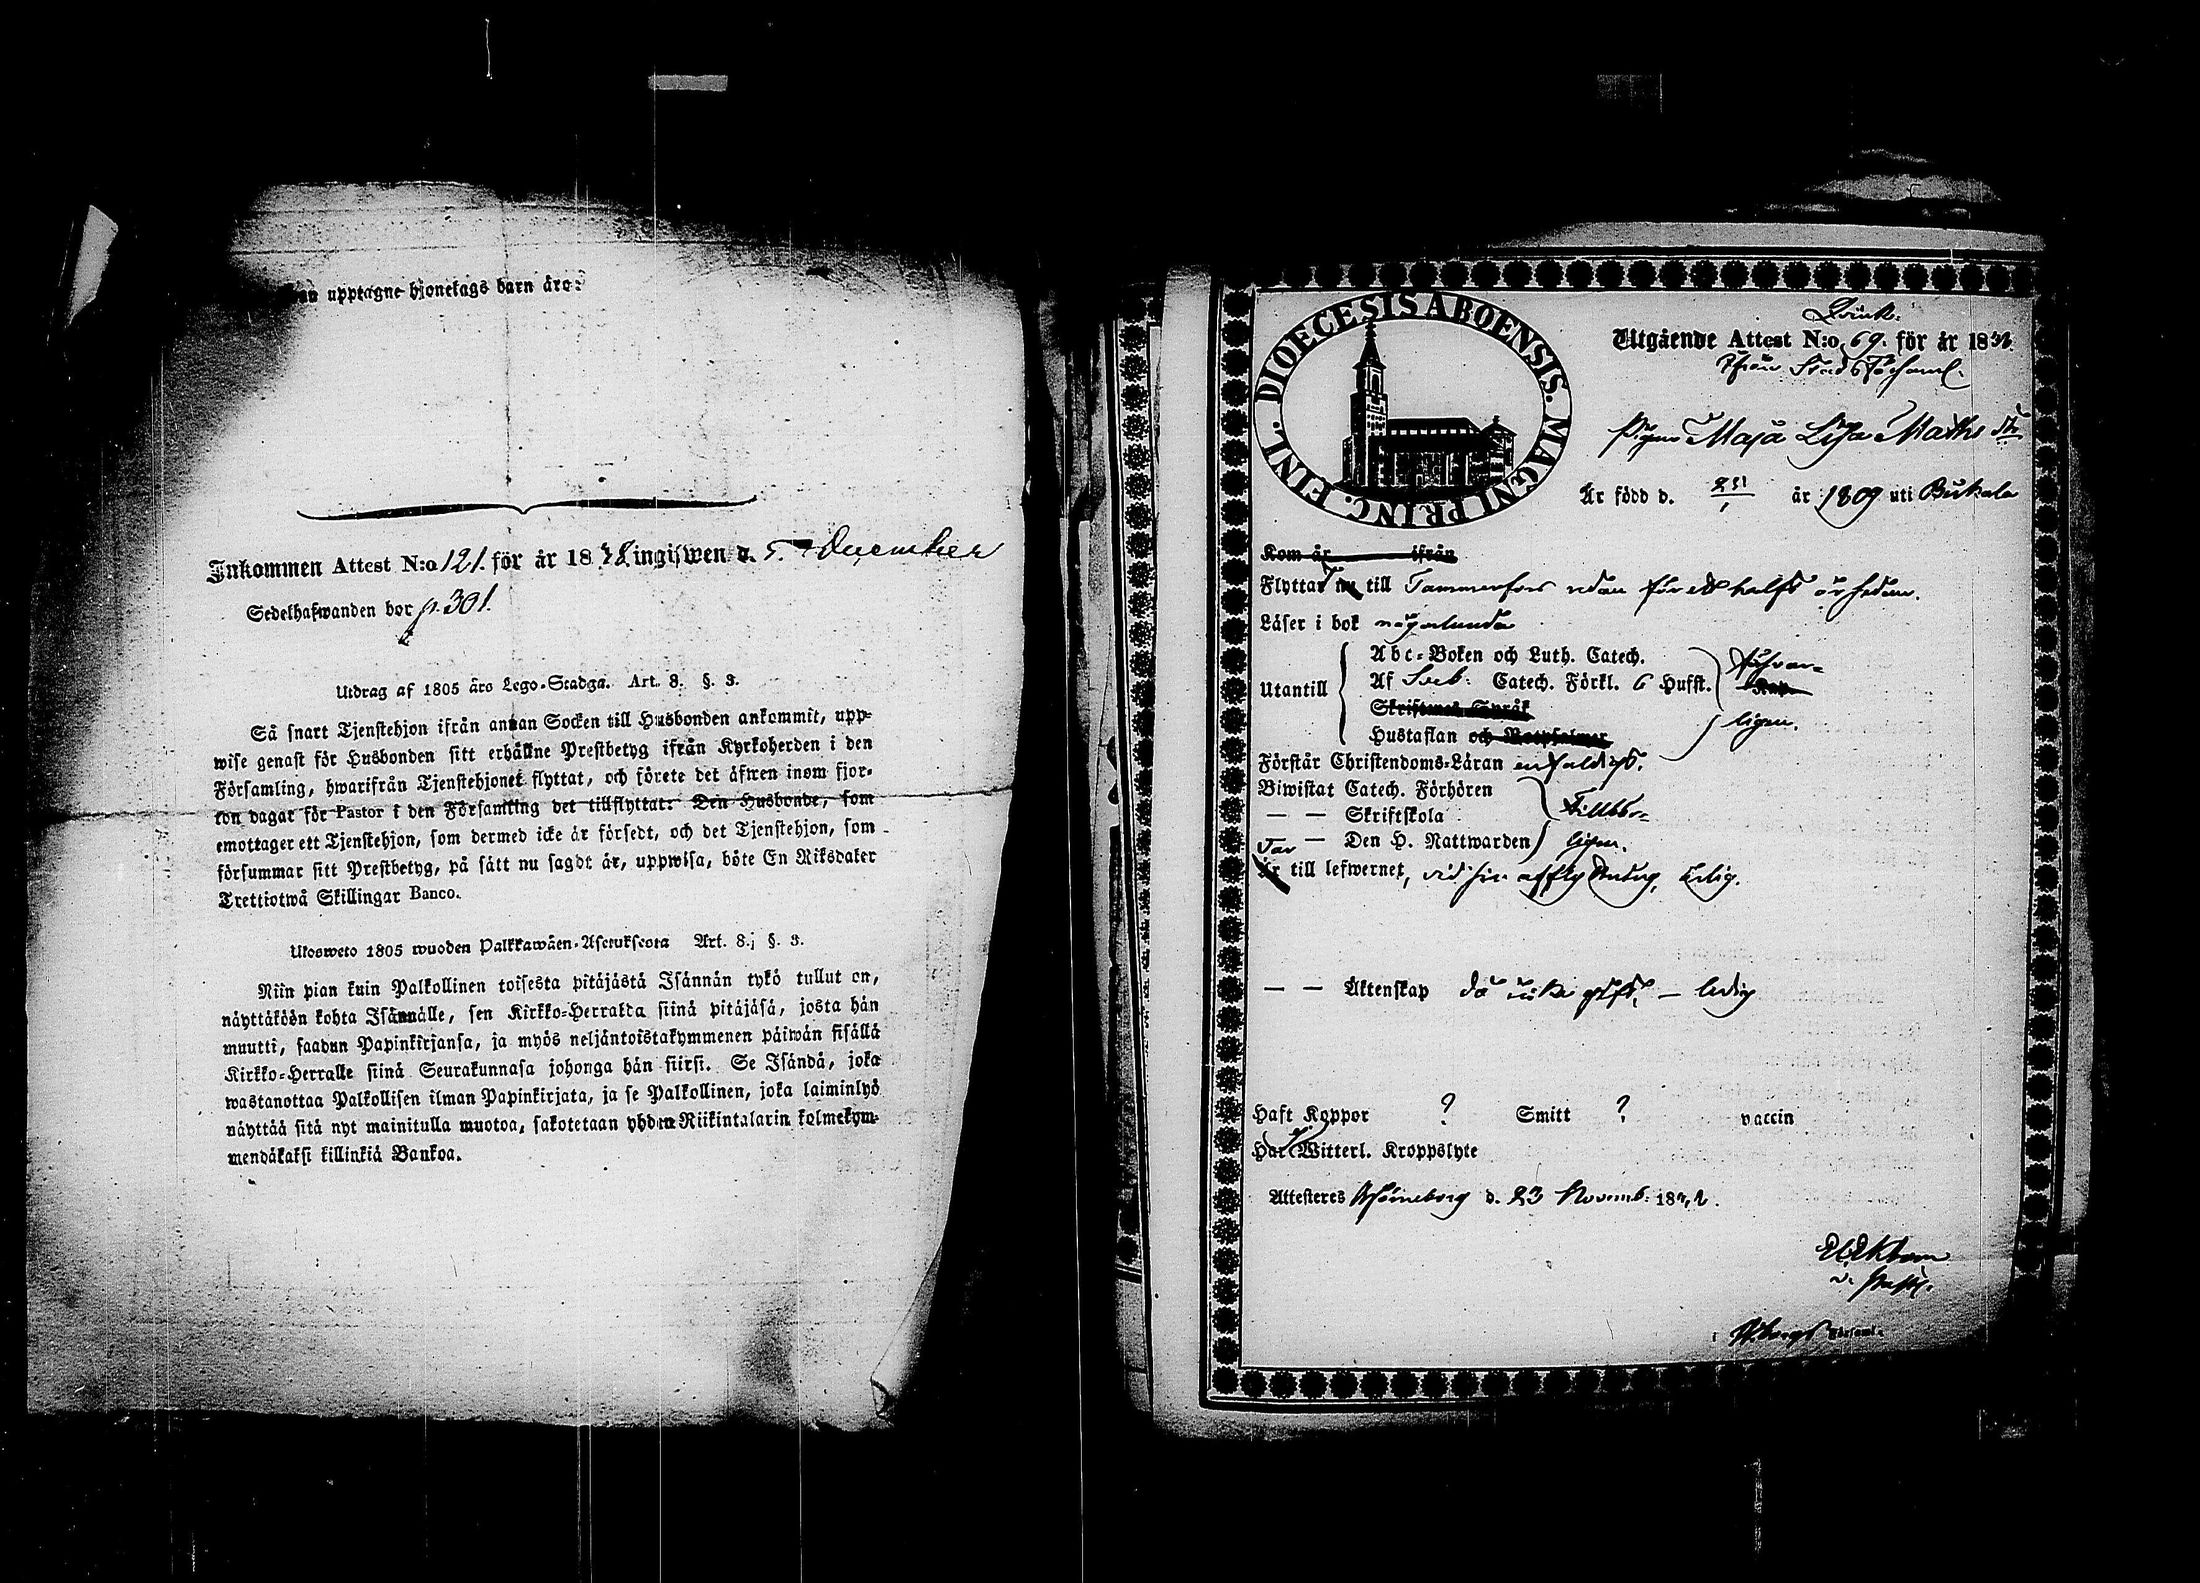 upptagne hjonelags barn äro:
Inkommen Attest N:o 121. för år 1842 ingifwen d. 5. December
Sedelhafwanden bor p. 301.
Utdrag af 1805 års Lego-Stadga. Art. 8. §. 3.
Så snart Tjenstehjon ifrån annan Socken till Husbonden ankommit, upp-
wise genast för Husbonden sitt erhållne Prestbetyg ifrån Kyrkoherden i den
Församling, hwarifrån Tjenstehjonet flyttat, och förete det äfwen inom fjor-
ton dagar för Pastor i den Församling det tillflyttat. Den Husbonde, som
emottager ett Tjenstehjon, som dermed icke är försedt, och det Tjenstehjon, som
försummar sitt Prestbetyg, på sätt nu sagdt är, uppwisa, böte En Riksdaler
Trettiotwå Skillingar Banco.
Ulosweto 1805 wuoden Palkkawäen-Asetuksesta Art. 8. §. 3.
Niin pian kuin Palkollinen toisesta pitäjästä Isännän tykö tullut on,
näyttäköön kohta Isännälle, sen Kirkko-Herralda siinä pitäjäsä, josta hän
muutti, saadun Papinkirjansa, ja myös neljäntoistakymmenen päiwän sisällä
Kirkko-Herralle siinä Seurakunnasa johonga hän siirsi. Se Isändä, joka
wastanottaa Palkollisen ilman Papinkirjata, ja se Palkollinen, joka laiminlyö
näyttää sitä nyt mainitulla muotoa, sakotetaan yhden Riikintalarin kolmekym-
mendäkaksi killinkiä Bankoa.
DIOECESIS ABOENSIS. MAGNI PRINC. FINL.
Utgående Attest N:o 69. för år 1842.
ifrån Stads Församl.
Pigan Maja Lisa Matths dr
Är född d. år 1809 uti Birkala
Kom år ifrån
Flyttat nu till Tammerfors redan för ett halft år sedan.
Läser i bok någorlunda
Utantill
Abc-Boken och Luth. Catech.
Af Sveb. Catech. Förkl. 6 Hufst.
försvar-
Skriftenes Språk
Hustaflan och Botpsalmer
ligen.
Förstår Christendoms-Läran enfaldigt.
Biwistat Catech. Förhören
— — Skriftskola
Tillbör-
— Den H. Nattwarden
ligen.
Var
Är till lefwernet, vid sin afflyttning, ärlig.
— — Äktenskap då icke gift, — ledig
Haft Koppor ? Smitt ? vaccin
Har Witterl. Kroppslyte
Attesteres Björneborg d. 23 Novemb. 1842.
v. Past.
i B:borgs Församl.